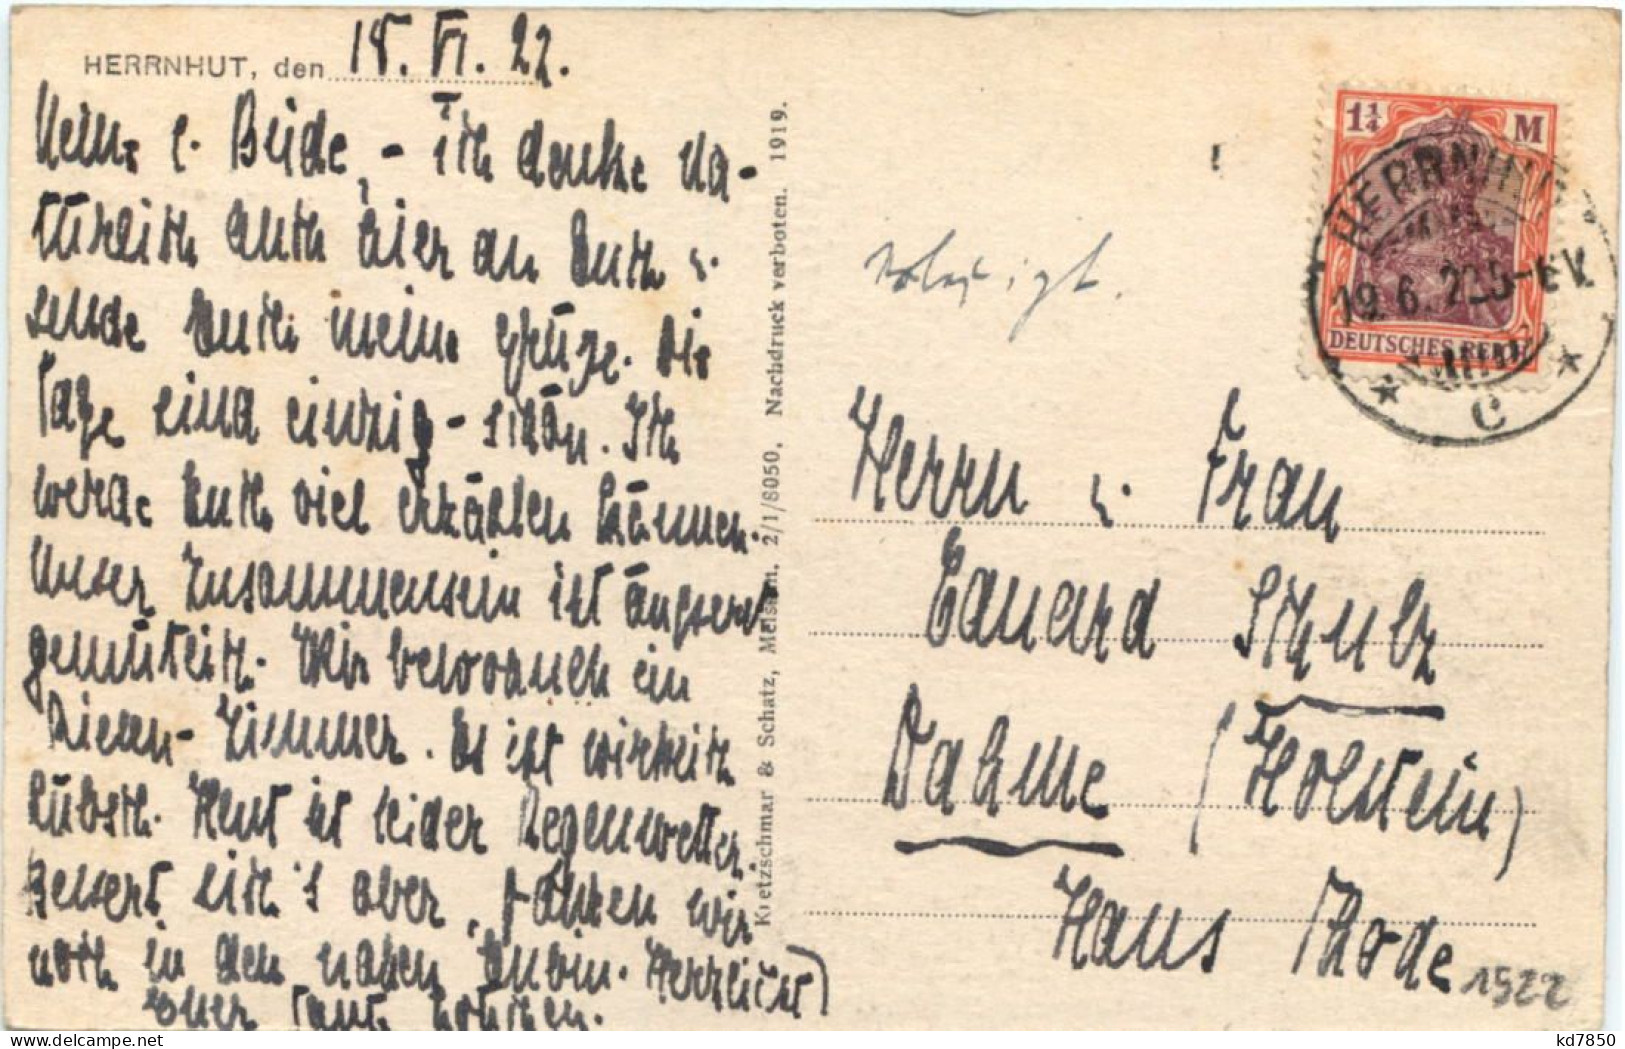 HERRNHUT, den 18. VI. 22.
Meine l. Beide, - ich denke na-
türlich auch hier an Euch u.
sende Euch meine Grüße. Die
Tage sind einzig-schön. Ich
werde Euch viel erzählen können.
Unser Zusammensein ist äusserst
gemütlich. Wir bewohnen ein
Riesen-Zimmer. Es ist wirklich
hübsch. Heut ist leider Regenwetter.
Bessert sich's aber, fahren wir
noch in den nahen Herzlichst
Euer
Kretzschmar & Schatz, Meissen. 2/1/8050. Nachdruck verboten. 1919.
1¼ M
DEUTSCHES REICH
HERRNHUT
19. 6. 22 5-6 V.
* C *
Herrn u. Frau
Eduard Schulz
Dahme (Holstein)
Haus Thode
1922
kd7850